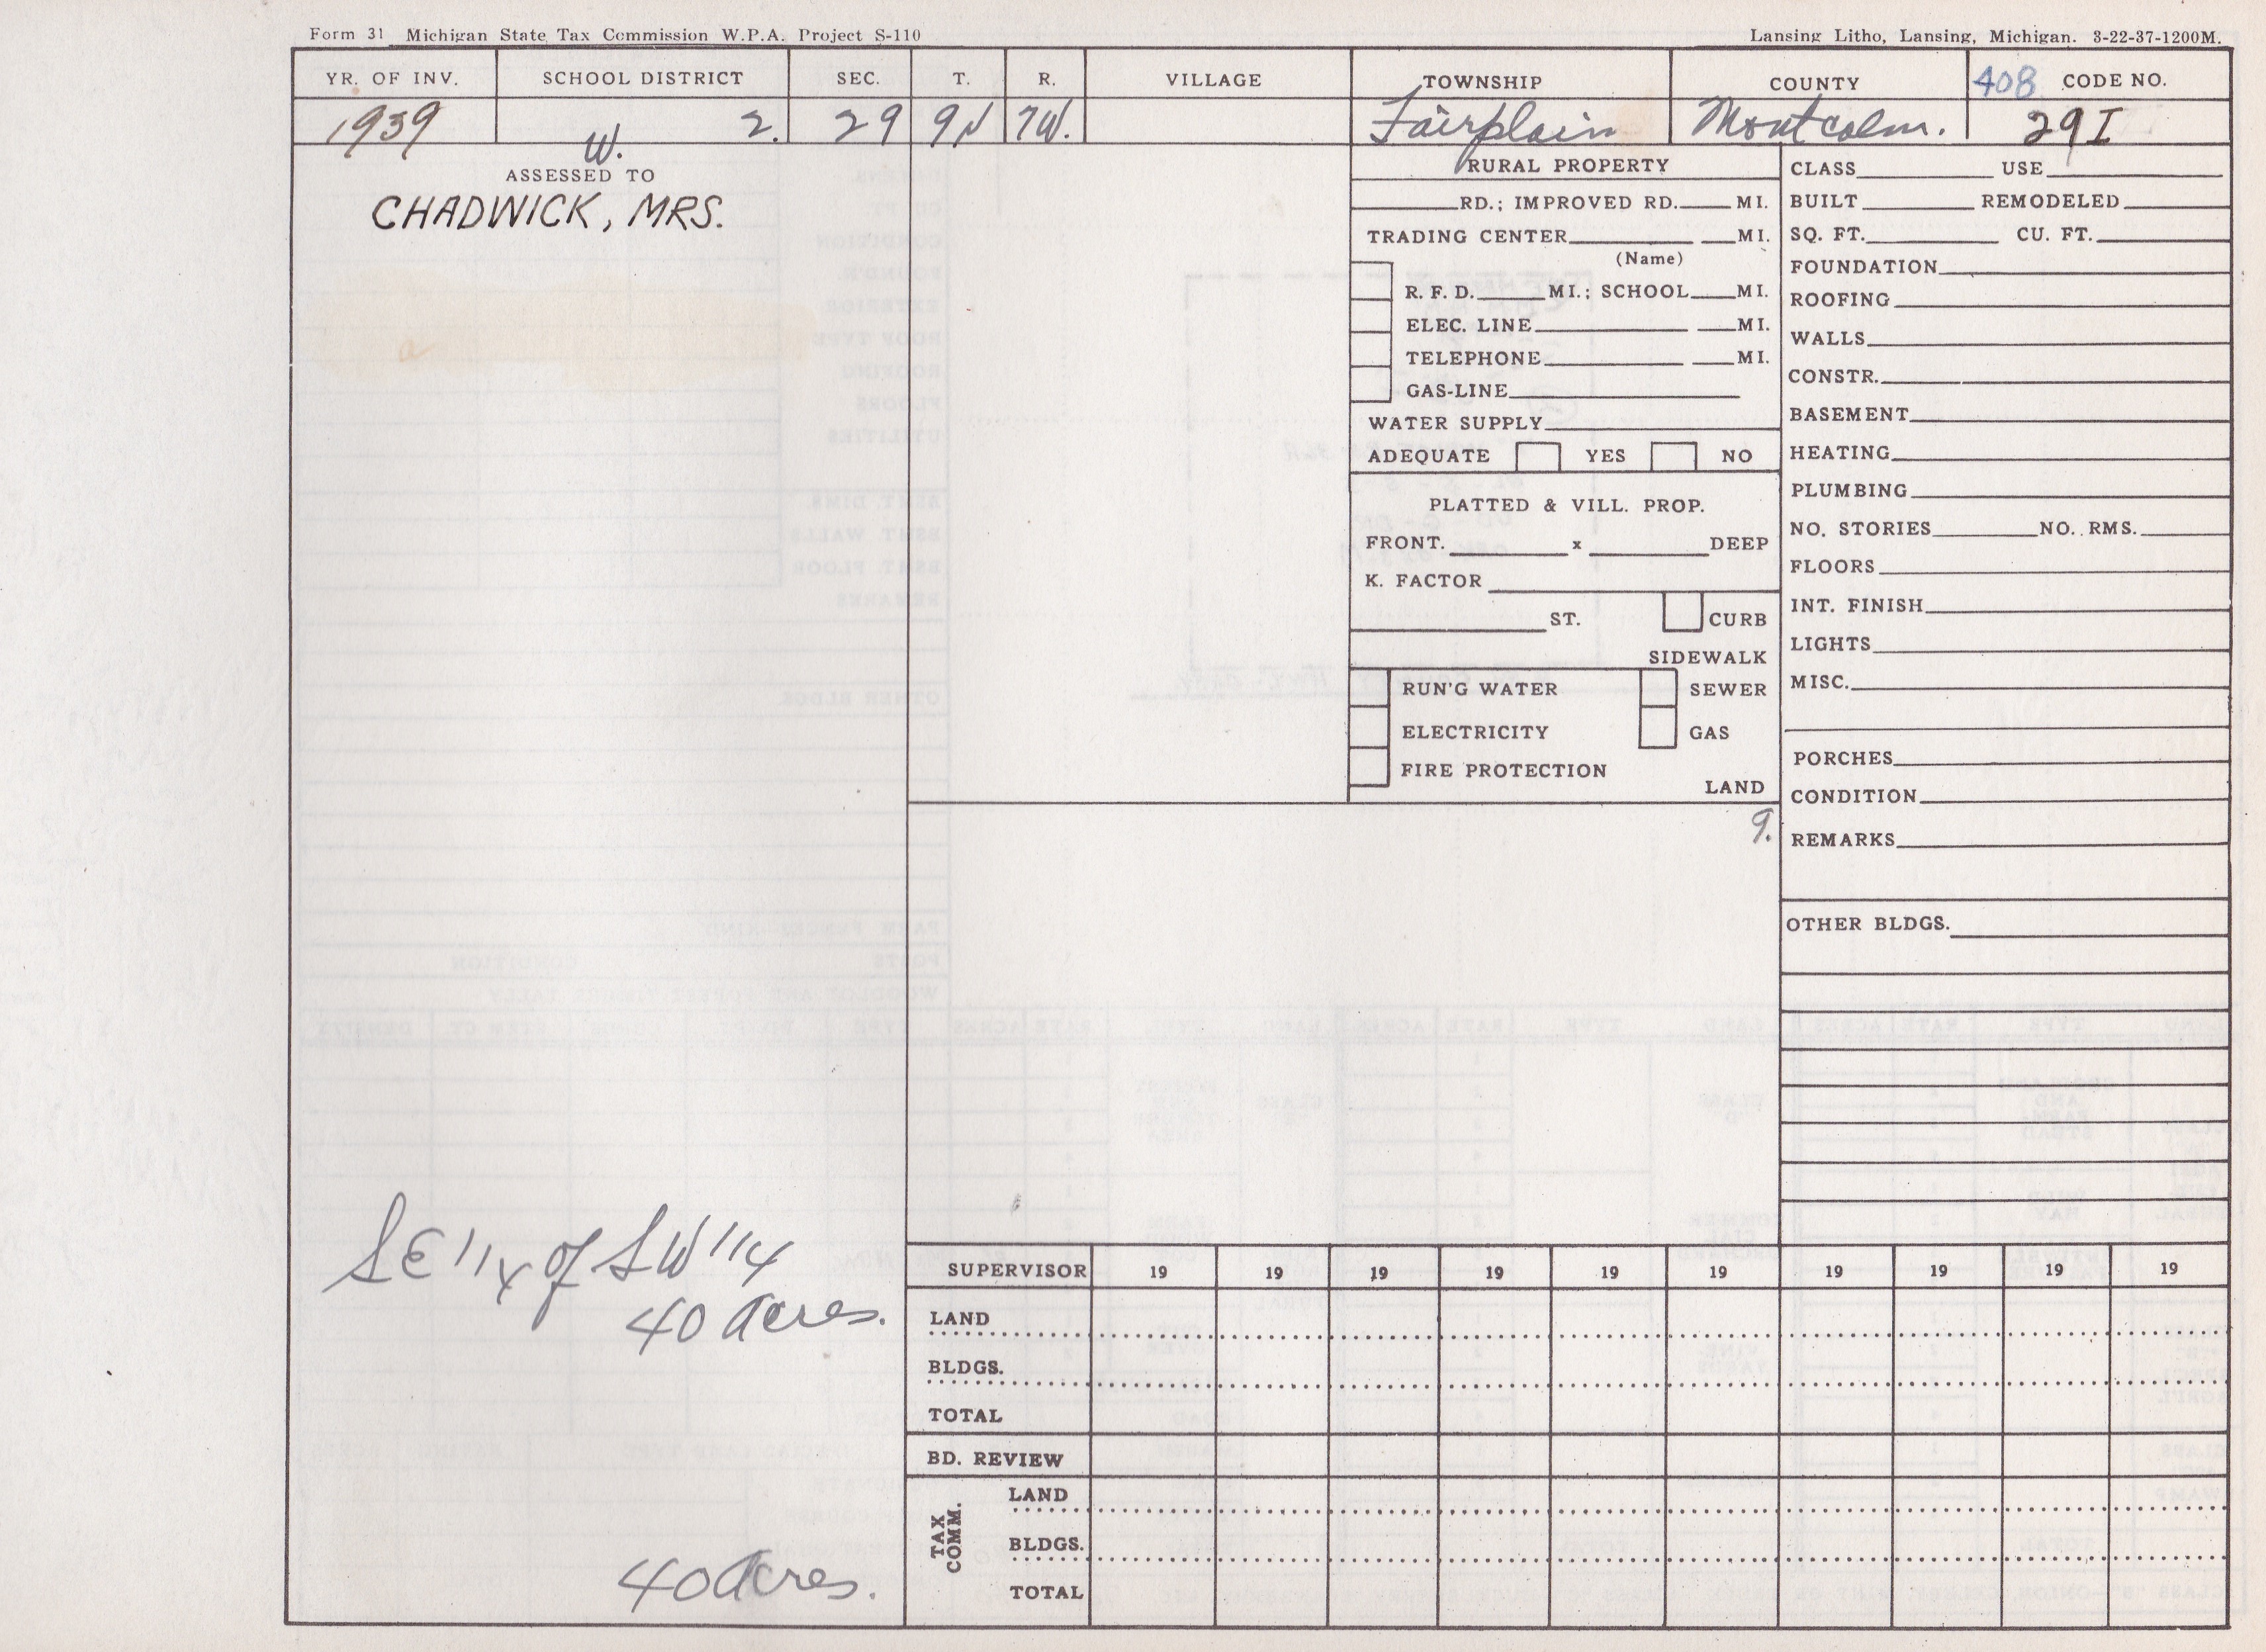 Form 31 Michigan State Tax Commission W.P.A. Project S-110
Lansing Litho, Lansing, Michigan. 3-22-37-1200M.
YR. OF INV. SCHOOL DISTRICT SEC. T. R. VILLAGE TOWNSHIP COUNTY 408 CODE NO.
1939 W. 2. 29 9N 7W. Fairplain Montcalm. 29I
ASSESSED TO
CHADWICK, MRS.
SE 1/4 of SW 1/4
40 Acres.
40 Acres.
RURAL PROPERTY
RD.; IMPROVED RD. MI.
TRADING CENTER MI.
(Name)
R. F. D. MI.; SCHOOL MI.
ELEC. LINE MI.
TELEPHONE MI.
GAS-LINE
WATER SUPPLY
ADEQUATE YES NO
PLATTED & VILL. PROP.
FRONT. x DEEP
K. FACTOR
ST. CURB
SIDEWALK
RUN'G WATER SEWER
ELECTRICITY GAS
FIRE PROTECTION
LAND
9.
CLASS USE
BUILT REMODELED
SQ. FT. CU. FT.
FOUNDATION
ROOFING
WALLS
CONSTR.
BASEMENT
HEATING
PLUMBING
NO. STORIES NO. RMS.
FLOORS
INT. FINISH
LIGHTS
MISC.
PORCHES
CONDITION
REMARKS
OTHER BLDGS.
SUPERVISOR 19 19 19 19 19 19 19 19 19 19
LAND
BLDGS.
TOTAL
BD. REVIEW
TAX COMM.
LAND
BLDGS.
TOTAL